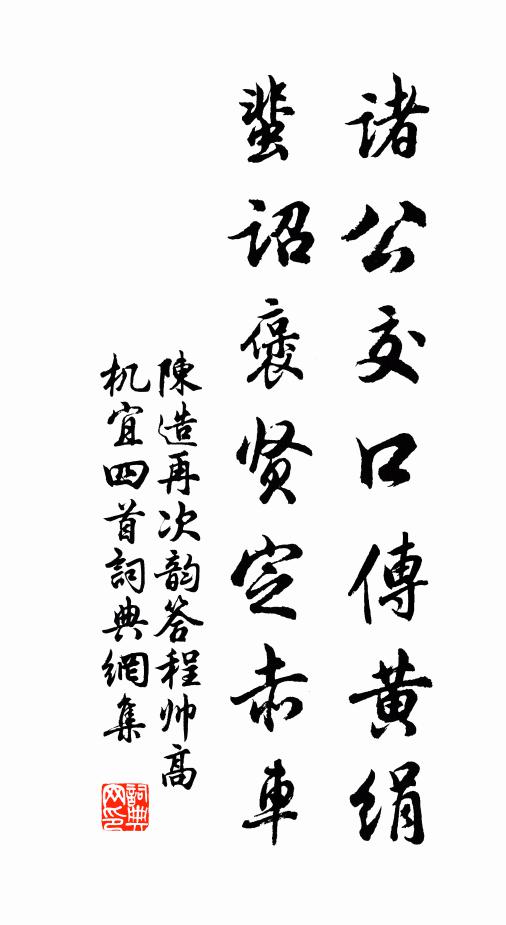 諸公交口傳黄絹
蜚詔褒贤定赤車
陳造再次韵答程帅高
机宜四首詞典網集
詞典网印